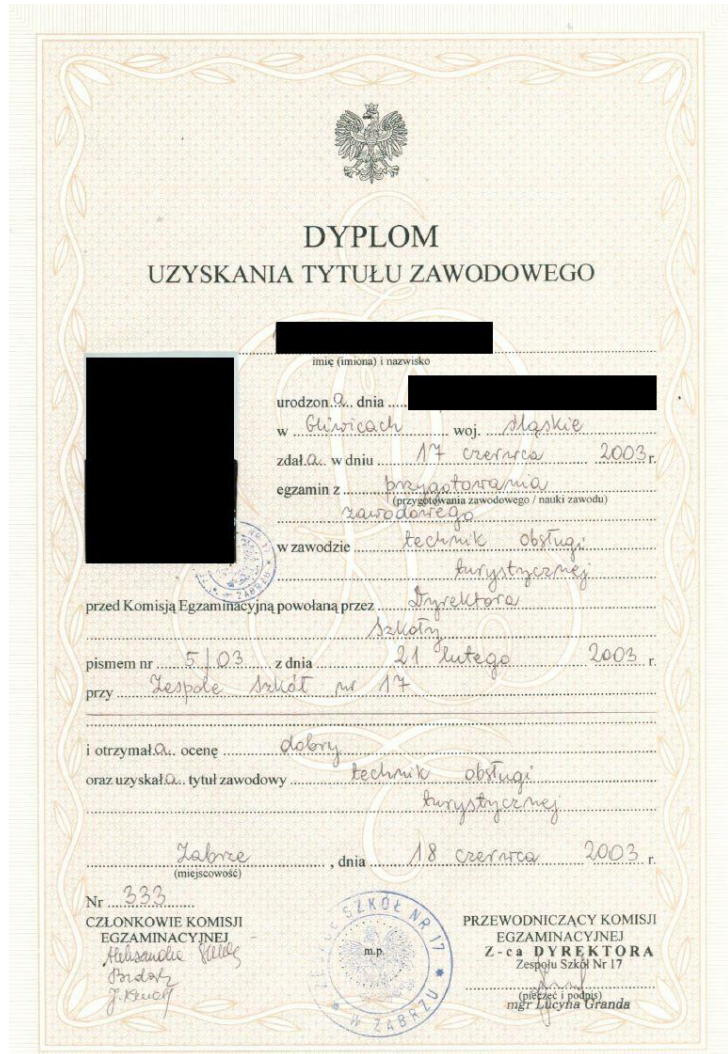 DYPLOM
UZYSKANIA TYTUŁU ZAWODOWEGO
imię (imiona) i nazwisko
urodzon a dnia
w Gliwicach woj. śląskie
zdał a w dniu 17 czerwca 2003 r.
egzamin z przygotowania
(przygotowania zawodowego / nauki zawodu)
zawodowego
w zawodzie technik obsługi
turystycznej
przed Komisją Egzaminacyjną powołaną przez Dyrektora
Szkoły
pismem nr 5/03 z dnia 21 lutego 2003 r.
przy Zespole Szkół nr 17
i otrzymał a ocenę dobry
oraz uzyskał a tytuł zawodowy technik obsługi
turystycznej
Zabrze, dnia 18 czerwca 2003 r.
(miejscowość)
Nr 333
CZŁONKOWIE KOMISJI
EGZAMINACYJNEJ
Aleksandra
PRZEWODNICZĄCY KOMISJI
EGZAMINACYJNEJ
Z-ca DYREKTORA
Zespołu Szkół Nr 17
(pieczęć i podpis)
mgr Lucyna Granda
m.p.
ZESPÓŁ SZKÓŁ NR 17 * W ZABRZU *